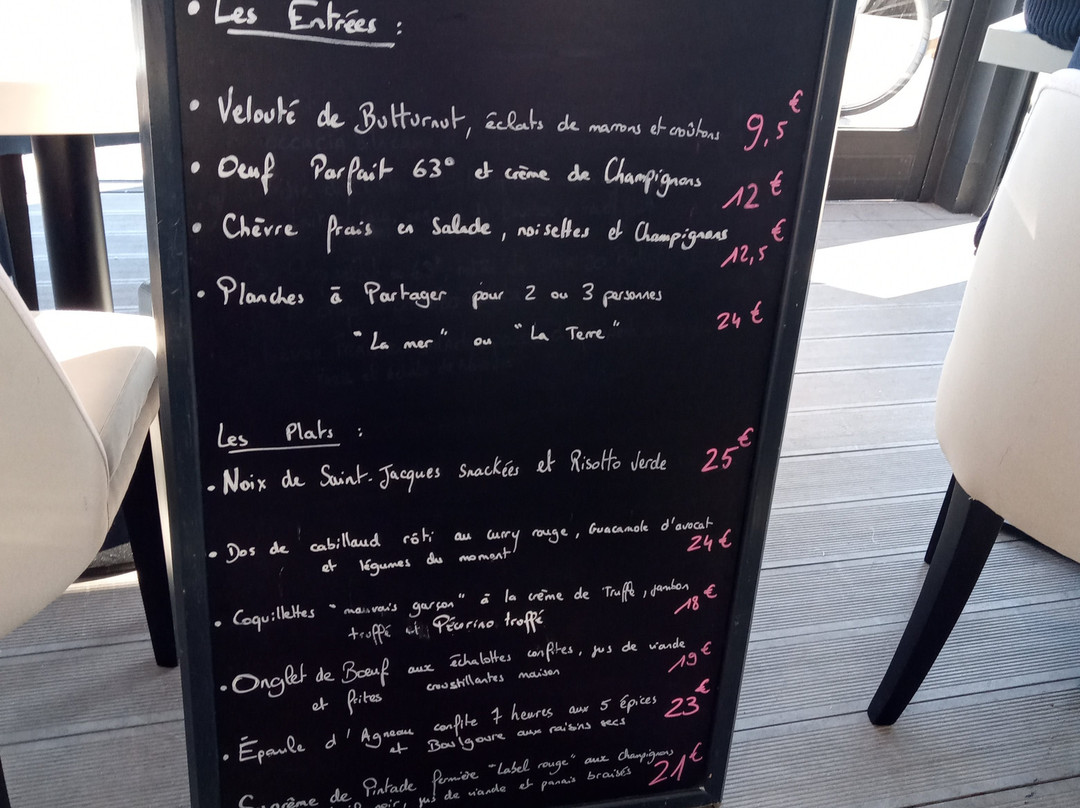 • Les Entrées :
• Velouté de Butturnut, éclats de marrons et croûtons 9,5 €
• Oeuf Parfait 63° et crème de Champignons 12 €
• Chèvre frais en Salade, noisettes et Champignons 12,5 €
• Planches à Partager pour 2 ou 3 personnes
"La mer" ou "La Terre" 24 €
Les Plats :
• Noix de Saint-Jacques Snackées et Risotto Verde 25 €
• Dos de cabillaud rôti au curry rouge, Guacamole d'avocat
et légumes du moment 24 €
• Coquillettes "mauvais garçon" à la crème de Truffe, jambon
truffé et Pécorino truffé 18 €
• Onglet de Bœuf aux échalottes confites, jus de viande
et frites croustillantes maison 19 €
• Épaule d'Agneau confite 7 heures aux 5 épices
et Boulgoure aux raisins secs 23 €
Suprême de Pintade fermière "Label rouge" aux Champignons
noir, jus de viande et panais braisés 21 €